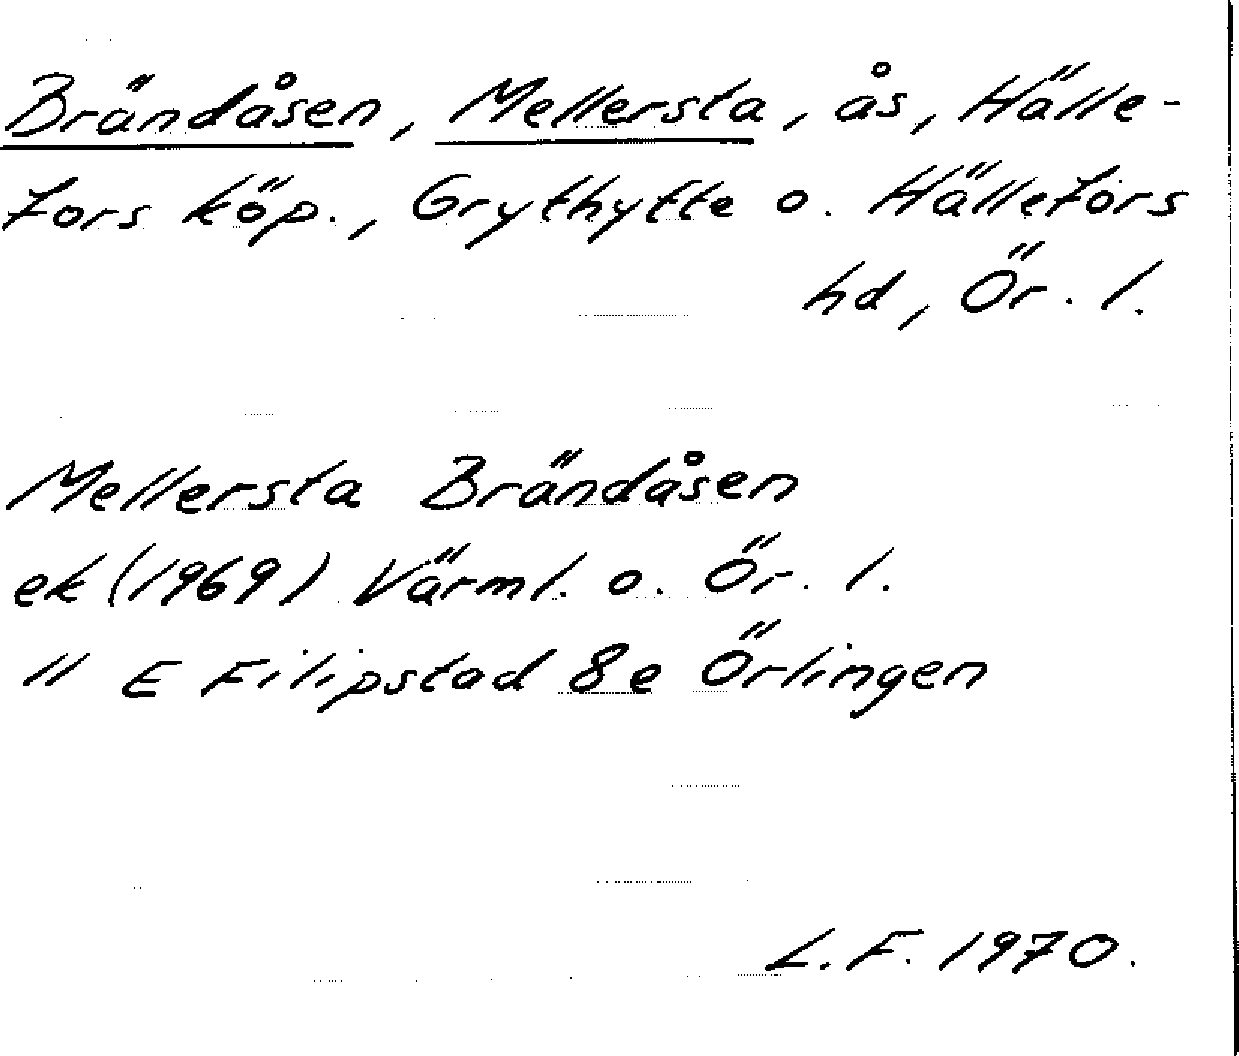 Brändåsen, Mellersta, ås, Hälle-
fors köp., Grythytte o. Hällefors
hd, Ör. l.
Mellersta Brändåsen
ek (1969) Värml. o. Ör. l.
" E Filipstad 8e Örlingen
L.F. 1970.